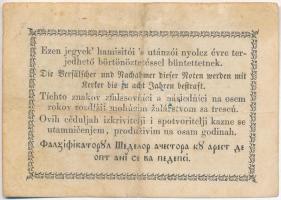 Ezen jegyek' hamisítói 's utánzói nyolcz évre ter-
jedhető börtönöztetéssel büntettetnek.
Die Verfälscher und Nachahmer dieser Noten werden mit
Kerker bis zu acht Jahren bestraft.
Tíchto znakov zfalšovači a násjedníci na osem
rokov rozdlúžiť mohúcim žalárstvom sa trescú.
Ovih cedulján izkrivitelji i spotvoritelji kazne se
utamničenjem, produživim na osam godinah.
Фалзіфікаторꙋл Шеделор ачестора кꙋ арест де
опт ані се ва педепсі.